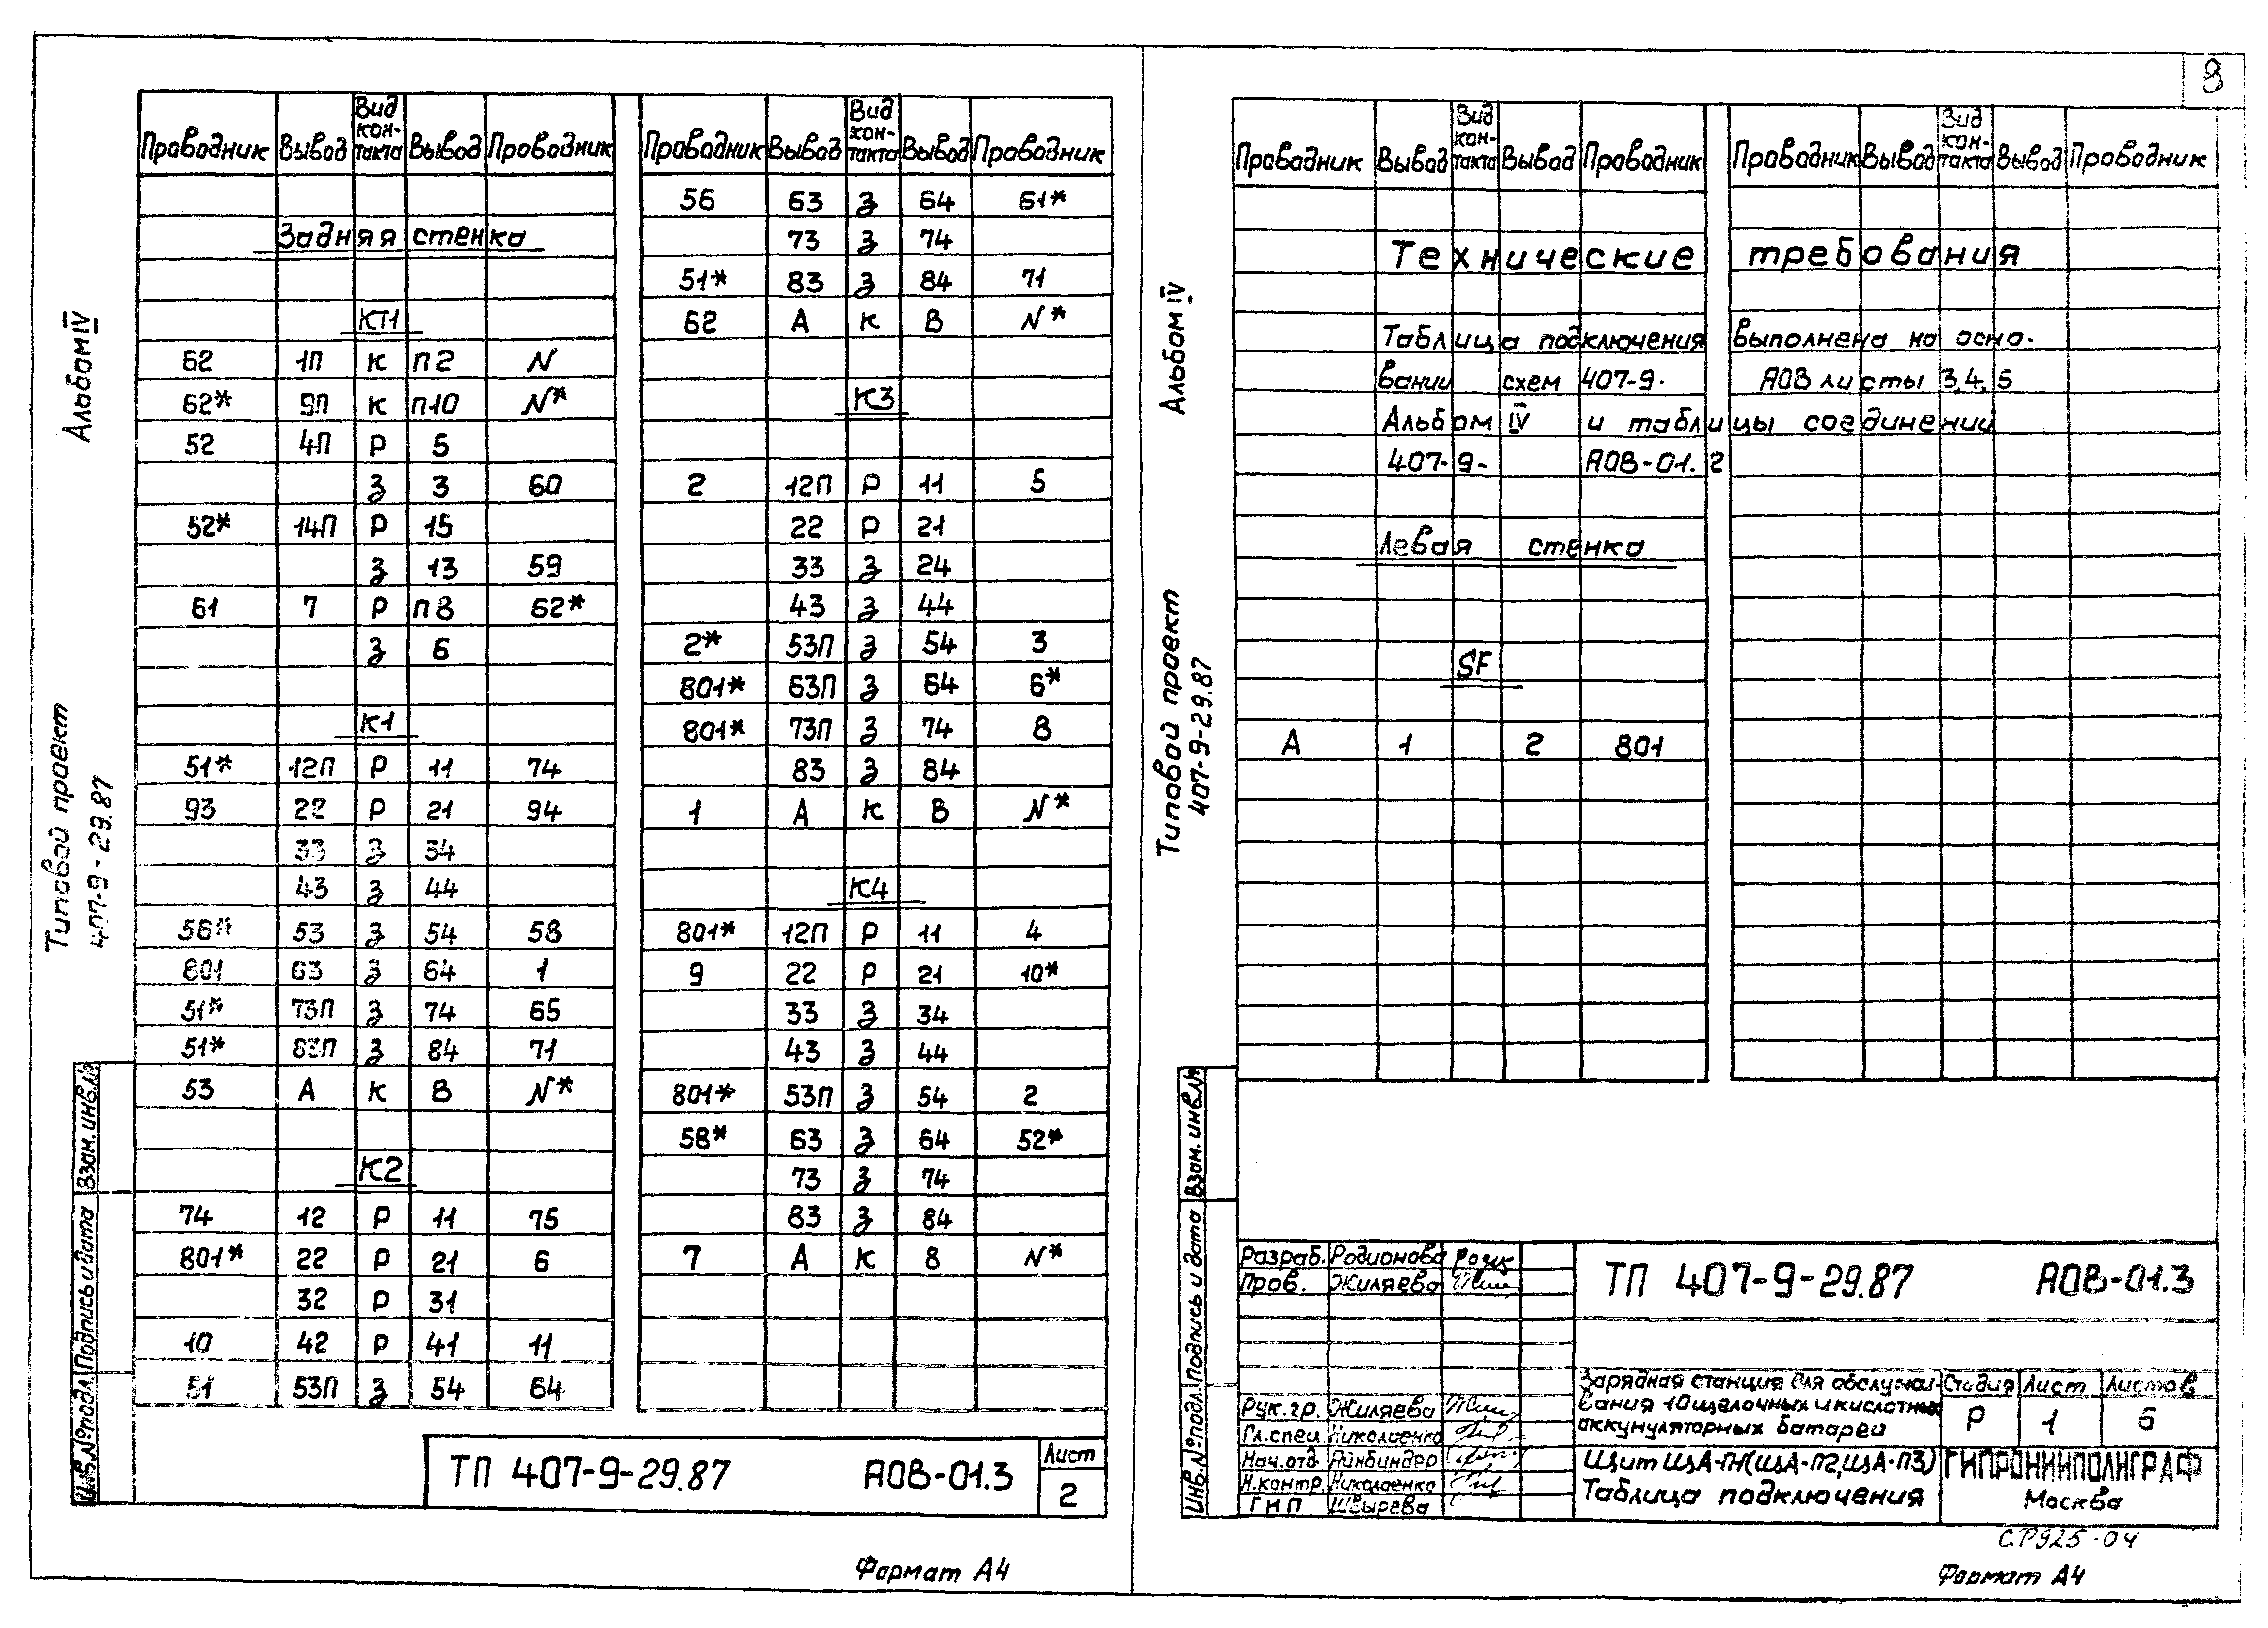 Альбом IV
Типовой проект
407-9-29.87
Проводник Вывод Вид кон-такта Вывод Проводник
Задняя стенка
КТ1
62 1П К П2 N
62* 9П К П10 N*
52 4П Р 5
З 3 60
52* 14П Р 15
З 13 59
61 7 Р П8 62*
З 6
К1
51* 12П Р 11 74
93 22 Р 21 94
33 З 34
43 З 44
53 З 54 58
801 63 З 64 1
51* 73П З 74 65
51* 83П З 84 71
53 А К В N*
К2
74 12 Р 11 75
801* 22 Р 21 6
32 Р 31
10 42 Р 41 11
51 53П З 54 64
Проводник Вывод Вид кон-такта Вывод Проводник
56 63 З 64 61*
73 З 74
51* 83 З 84 71
62 А К В N*
К3
2 12П Р 11 5
22 Р 21
33 З 24
43 З 44
2* 53П З 54 3
801* 63П З 64 6*
801* 73П З 74 8
83 З 84
1 А К В N*
К4
801* 12П Р 11 4
9 22 Р 21 10*
33 З 34
43 З 44
801* 53П З 54 2
58* 63 З 64 52*
73 З 74
83 З 84
7 А К В N*
Взам. инв.№
Подпись и дата
Инв.№подл.
ТП 407-9-29.87 АОВ-01.3
Лист
2
Формат А4
Альбом IV
Типовой проект
407-9-29.87
Проводник Вывод Вид кон-такта Вывод Проводник
Проводник Вывод Вид кон-такта Вывод Проводник
Технические требования
Таблица подключения выполнена на осно-
вании схем 407-9- АОВ листы 3,4,5
Альбом IV и таблицы соединений
407-9- АОВ-01.2
Левая стенка
SF
А 1 2 801
Взам. инв.№
Подпись и дата
Инв.№подл.
Разраб. Родионова
Пров. Жиляева
Рук.гр. Жиляева
Гл.спец. Николаенко
Нач.отд. Айнбиндер
Н.контр. Николаенко
ГИП Швырева
ТП 407-9-29.87 АОВ-01.3
Зарядная станция для обслужи-
вания 10 щелочных и кислотных
аккумуляторных батарей
Стадия Лист Листов
Р 1 5
Щит ЩА-П1(ЩА-П2,ЩА-П3)
Таблица подключения
ГИПРОНИИПОЛИГРАФ
Москва
Формат А4